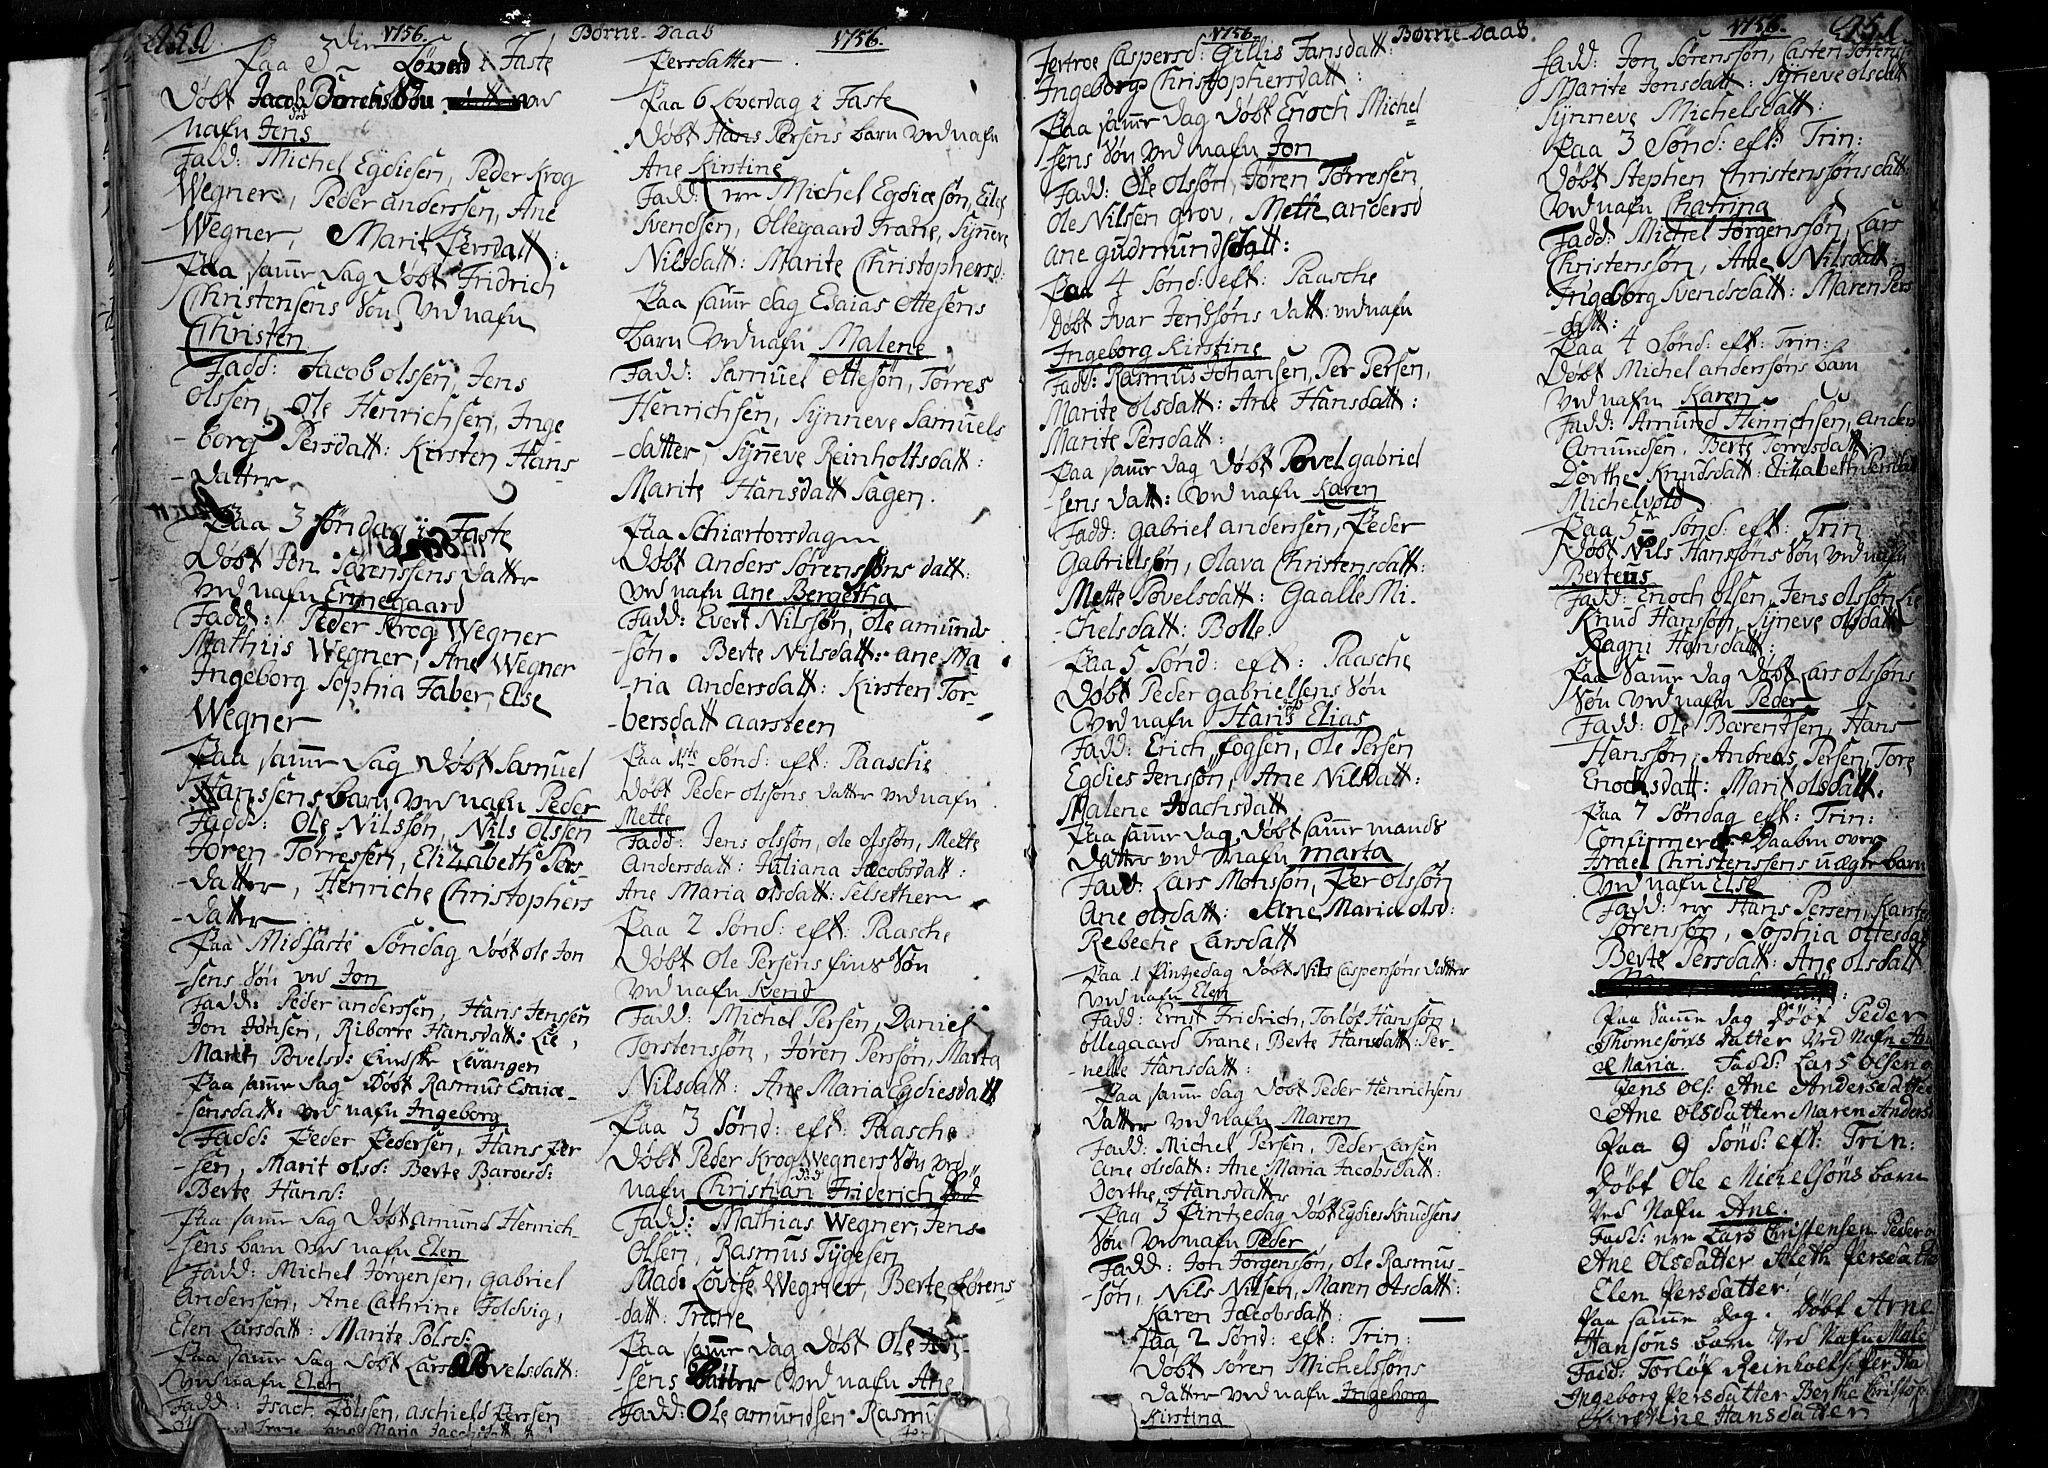 1756. Børne-Daab 1756.
Paa 3 Løverd i Faste
Døbt Jacob Sørensens Søn ved
nafn Jens
Fadd: Michel Egdiesen, Peder Krog
Wegner, Peder anderssen, Ane
Wegner, Marit Persdatt:
Paa samme dag Døbt Fridrich
Christensens Søn, ved nafn
Christen
Fadd: Jacob olssen, Jens
olssen, Ole Henrichsen, Inge-
-borg Persdatt: Kirsten Hans-
-datter
Paa 3 søndag i Faste
Døbt Jon Sørenssens datter
ved nafn Ermegaard
Fadd: Peder Krog Wegner
Mathiis Wegner, Ane Wegner
Ingeborg Sophia Faber, Else
Wegner
Paa samme dag Døbt Samuel
Hanssens barn ved nafn Peder
Fadd: Ole Nilssøn, Nils Olssen
Joren Torressen, Elizabeth Pers-
-datter, Henriche Christophers
-datter
Paa Midfaste Søndag Døbt ole Jon
sens Søn ved Jon
Fadd: Peder anderssen, Hans Jenssen
Jon Jonsen, Riborre Hansdatt: Lie,
Maren Povelsd: Levangen
Paa samme dag Døbt Rasmus Esaiæ-
-sensdatt: ved nafn Ingeborg
Fadd: Peder Pedersen, Hans Per
-sen, Marit olsd: Berte Baroesd:
Berte Hansd:
Paa samme dag Døbt amund Henrich-
-sens barn ved nafn Elen
Fadd: Michel Jørgensen, gabriel
Anderssen, Ane Cathrine Foldvig,
Elen Larsdatt: Marite Polsd:
Paa samme dag Døbt Lars Povelsdatt:
ved nafn Elen
Fadd: Isach Polssen, aschield Perssen
Persdatter
Paa 6 Løverdag i Faste
Døbt Hans Persens barn ved nafn
Ane Kirstine
Fadd: Michel Egdiæsøn, Eiler
Svendsen, Ollegaard Trane, Synneve
Nilsdatt: Marite Christophersd:
Paa samme dag Esaias ottesens
barn ved nafn Malene
Fadd: Samuel ottesøn, Torres
Henrichsen, Synneve Samuels-
-datter, Synneve Reinholtsdatt:
Marite Hansdatt Sagen.
Paa Schiærtorsdag
Døbt Anders Sørenssøns datt:
ved nafn Ane Bergetha
Fadd: Evert Nilssøn, Ole amunds
-søn. Berte Nilsdatt: Ane Ma
-ria Andersdatt: Kirsten Tor-
-bersdatt aarsteen
Paa 1ste Sønd: eft: Paasche
Døbt Peder olssøns datter ved nafn
Mette
Fadd: Jens olssøn, ole olssøn, Mette
Andersdatt: Juliana Jacobsdatt:
Ane Maria olsdatt: Selsether
Paa 2 Sønd: eft: Paasche
Døbt Ole Persens Søn
ved nafn Svend
Fadd: Michel Persen, Daniel
Torstenssøn, Jøren Perssøn, Marta
Nilsdatt: Ane Maria Egdiesdatt
Paa 3 Sønd: eft: Paasche
Døbt Peder Krog Wegners Søn ved
nafn Christian Friderich
Fadd: Mathias Wegner, Jens
Olssen, Rasmus Tygesen
Mad: Lovise Wegner, Berte Sørens-
datt: Trane
Paa samme dag Døbt Ole
-sens datter ved nafn Ane
Fadd: Ole amundsen Rasmu
1756. Børne-Daab. 1756. 251
Jertroe Caspersd: Gillis Jansdatt:
Ingeborg Christophersdatt:
Paa samme dag Døbt Enoch Michel
-sens Søn ved nafn Jon
Fadd: Ole olssøn, Jøren Torressen,
Ole Nilsen grov, Mette andersd
ane gudmundsdatt:
Paa 4 Sønd: eft: Paasche
Døbt Ivar Jendsøns datt: ved nafn
Ingeborg Kirstine
Fadd: Rasmus Johansen, Per Persen,
Marite olsdatt: Ane Hansdatt:
Marite Persdatt:
Paa samme dag Døbt Povel gabriel
sens datt: ved nafn Karen
Fadd: gabriel anderssen, Peder
Gabrielssøn, Olava Christensdatt:
Mette Povelsdatt: Gaalle Mi-
-chelsdatt: Bolle.
Paa 5 Sønd: eft: Paasche
Døbt Peder gabrielsens Søn
ved nafn Hans Elias
Fadd: Erich Fogsen, Ole Persen
Egdies Jenssøn, Ane Nilsdatt:
Malene Isachsdatt
Paa samme dag Døbt samme mands
datter ved nafn Marta
Fadd: Lars Monssøn, Per olssøn
Ane olsdatt: Ane Maria olsd:
Rebeche Larsdatt
Paa 1 Pintzedag Døbt Nils Casperssøns datter
ved nafn Elen
Fadd: Ernst Fridrich, Torløf Hanssøn,
ollegaard Trane, Berte Hansdatt: Per-
-nelle Hansdatt:
Paa samme dag Døbt Peder Henrichsens
datter ved nafn Maren
Fadd: Michel Persen, Peder Larsen
Ane olsdatt: Ane Maria Jacobsdatt:
Dorthe Hansdatter
Paa 3 Pintzedag Døbt Egdies Knudsens
Søn ved nafn Peder
Fadd: Jon Jørgenssøn, ole Rasmus-
-søn, Nils Nilsen, Maren otsdatt:
Karen Jacobsdatt:
Paa 2 Sønd: eft: Trin:
Døbt Søren Michelssøns
datter ved nafn Ingeborg
Kirstina
Fadd: Jon Sørenssøn, Casten Sørens
Marite Jonsdatt: Synneve olsdatt
Synneve Michelsdatt:
Paa 3 Sønd: eft: Trin:
Døbt Stephen Christenssønsdatt:
ved nafn Chatrina
Fadd: Michel Jørgenssøn, Lars
Christenssøn, Ane Nilsdatt
Ingeborg Svendsdatt: Maren Pers
-datt:
Paa 4 Sønd: eft: Trin:
Døbt Michel anderssøns barn
ved nafn Karen
Fadd: Amund Henrichsen, anders
Amundsen, Berte Torresdatt:
Dorthe Knudsdatt: Elizabeth Persdatt
Michelvold
Paa 5te Sønd: eft: Trin
Døbt Nils Hanssøns Søn ved nafn
Berteus
Fadd: Enoch olsen, Jens olssøn Lie
Knud Hanssøn, Syneve olsdatt
Ragni Hansdatt:
Paa samme dag Døbt Lars olssøns
Søn ved nafn Peder
Fadd: Ole Bærentsen, Hans
Hanssøn, Andreas Persen, Tore
Enochsdatt: Marit olsdatt.
Paa 7 Søndag eft: Trin:
Confirmert Daaben over
Israel Christenssens uægte barn
ved nafn Else
Fadd: Hans Persen, Karsten
Sørenssøn, Sophia ottesdat
Berte Persdatt: Ane olsdatt
Paa Samme dag Døbt Peder
Thomesøns datter ved Nafn An
Maria. Fadd: Lars Olsen
Jens ols: Ane Andersdatter
Ane Olsdatter Maren Anders
Paa 9 Sønd: eft: Trin:
Døbt Ole Michelsøns barn
ved Nafn Ane.
Fadd: Lars Christensen Peder
Ane Olsdatter Aleth Persdatter
Elen Persdatter
Paa samme dag. Døbt Arne
Hansøns barn ved Nafn Male
Fadd: Torløf Reinholts:
Ingeborg Persdatter Berthe Christop
Kirstine Hansdatter